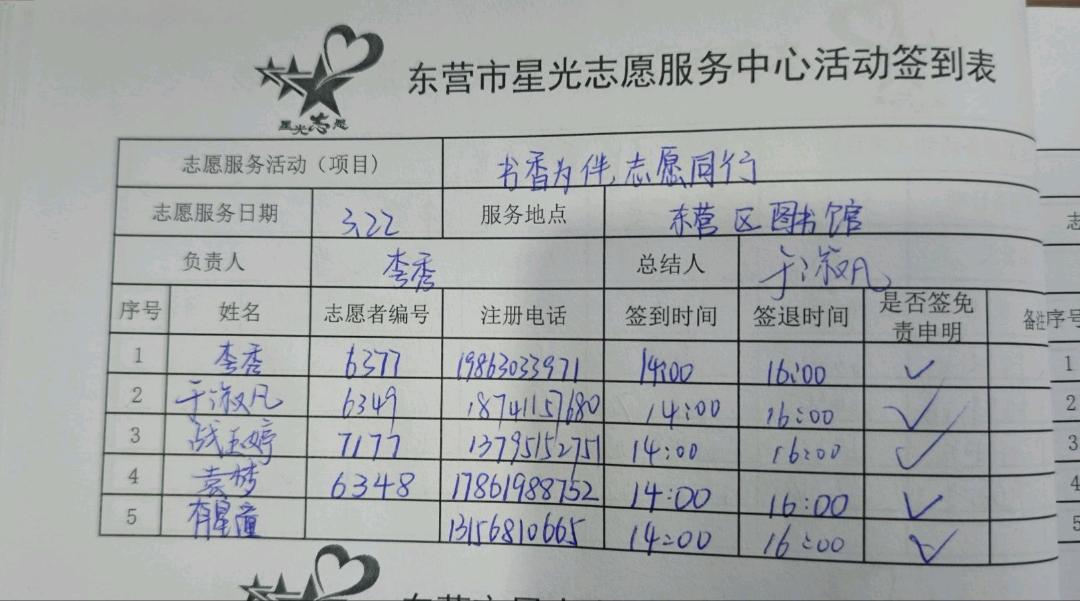 东营市星光志愿服务中心活动签到表
星光志愿
志愿服务活动（项目） 书香为伴,志愿同行
志愿服务日期 3.22 服务地点 东营区图书馆
负责人 李秀 总结人 于淑凡
序号 姓名 志愿者编号 注册电话 签到时间 签退时间 是否签免责申明 备注
1 李秀 6377 19863033971 14:00 16:00 ✓
2 于淑凡 6349 18741157680 14:00 16:00 ✓
3 战玉婷 7177 13795152751 14:00 16:00 ✓
4 袁梦 6348 17861988752 14:00 16:00 ✓
5 星童 13156810665 14:00 16:00 ✓
志
序号
1
2
3
4
5